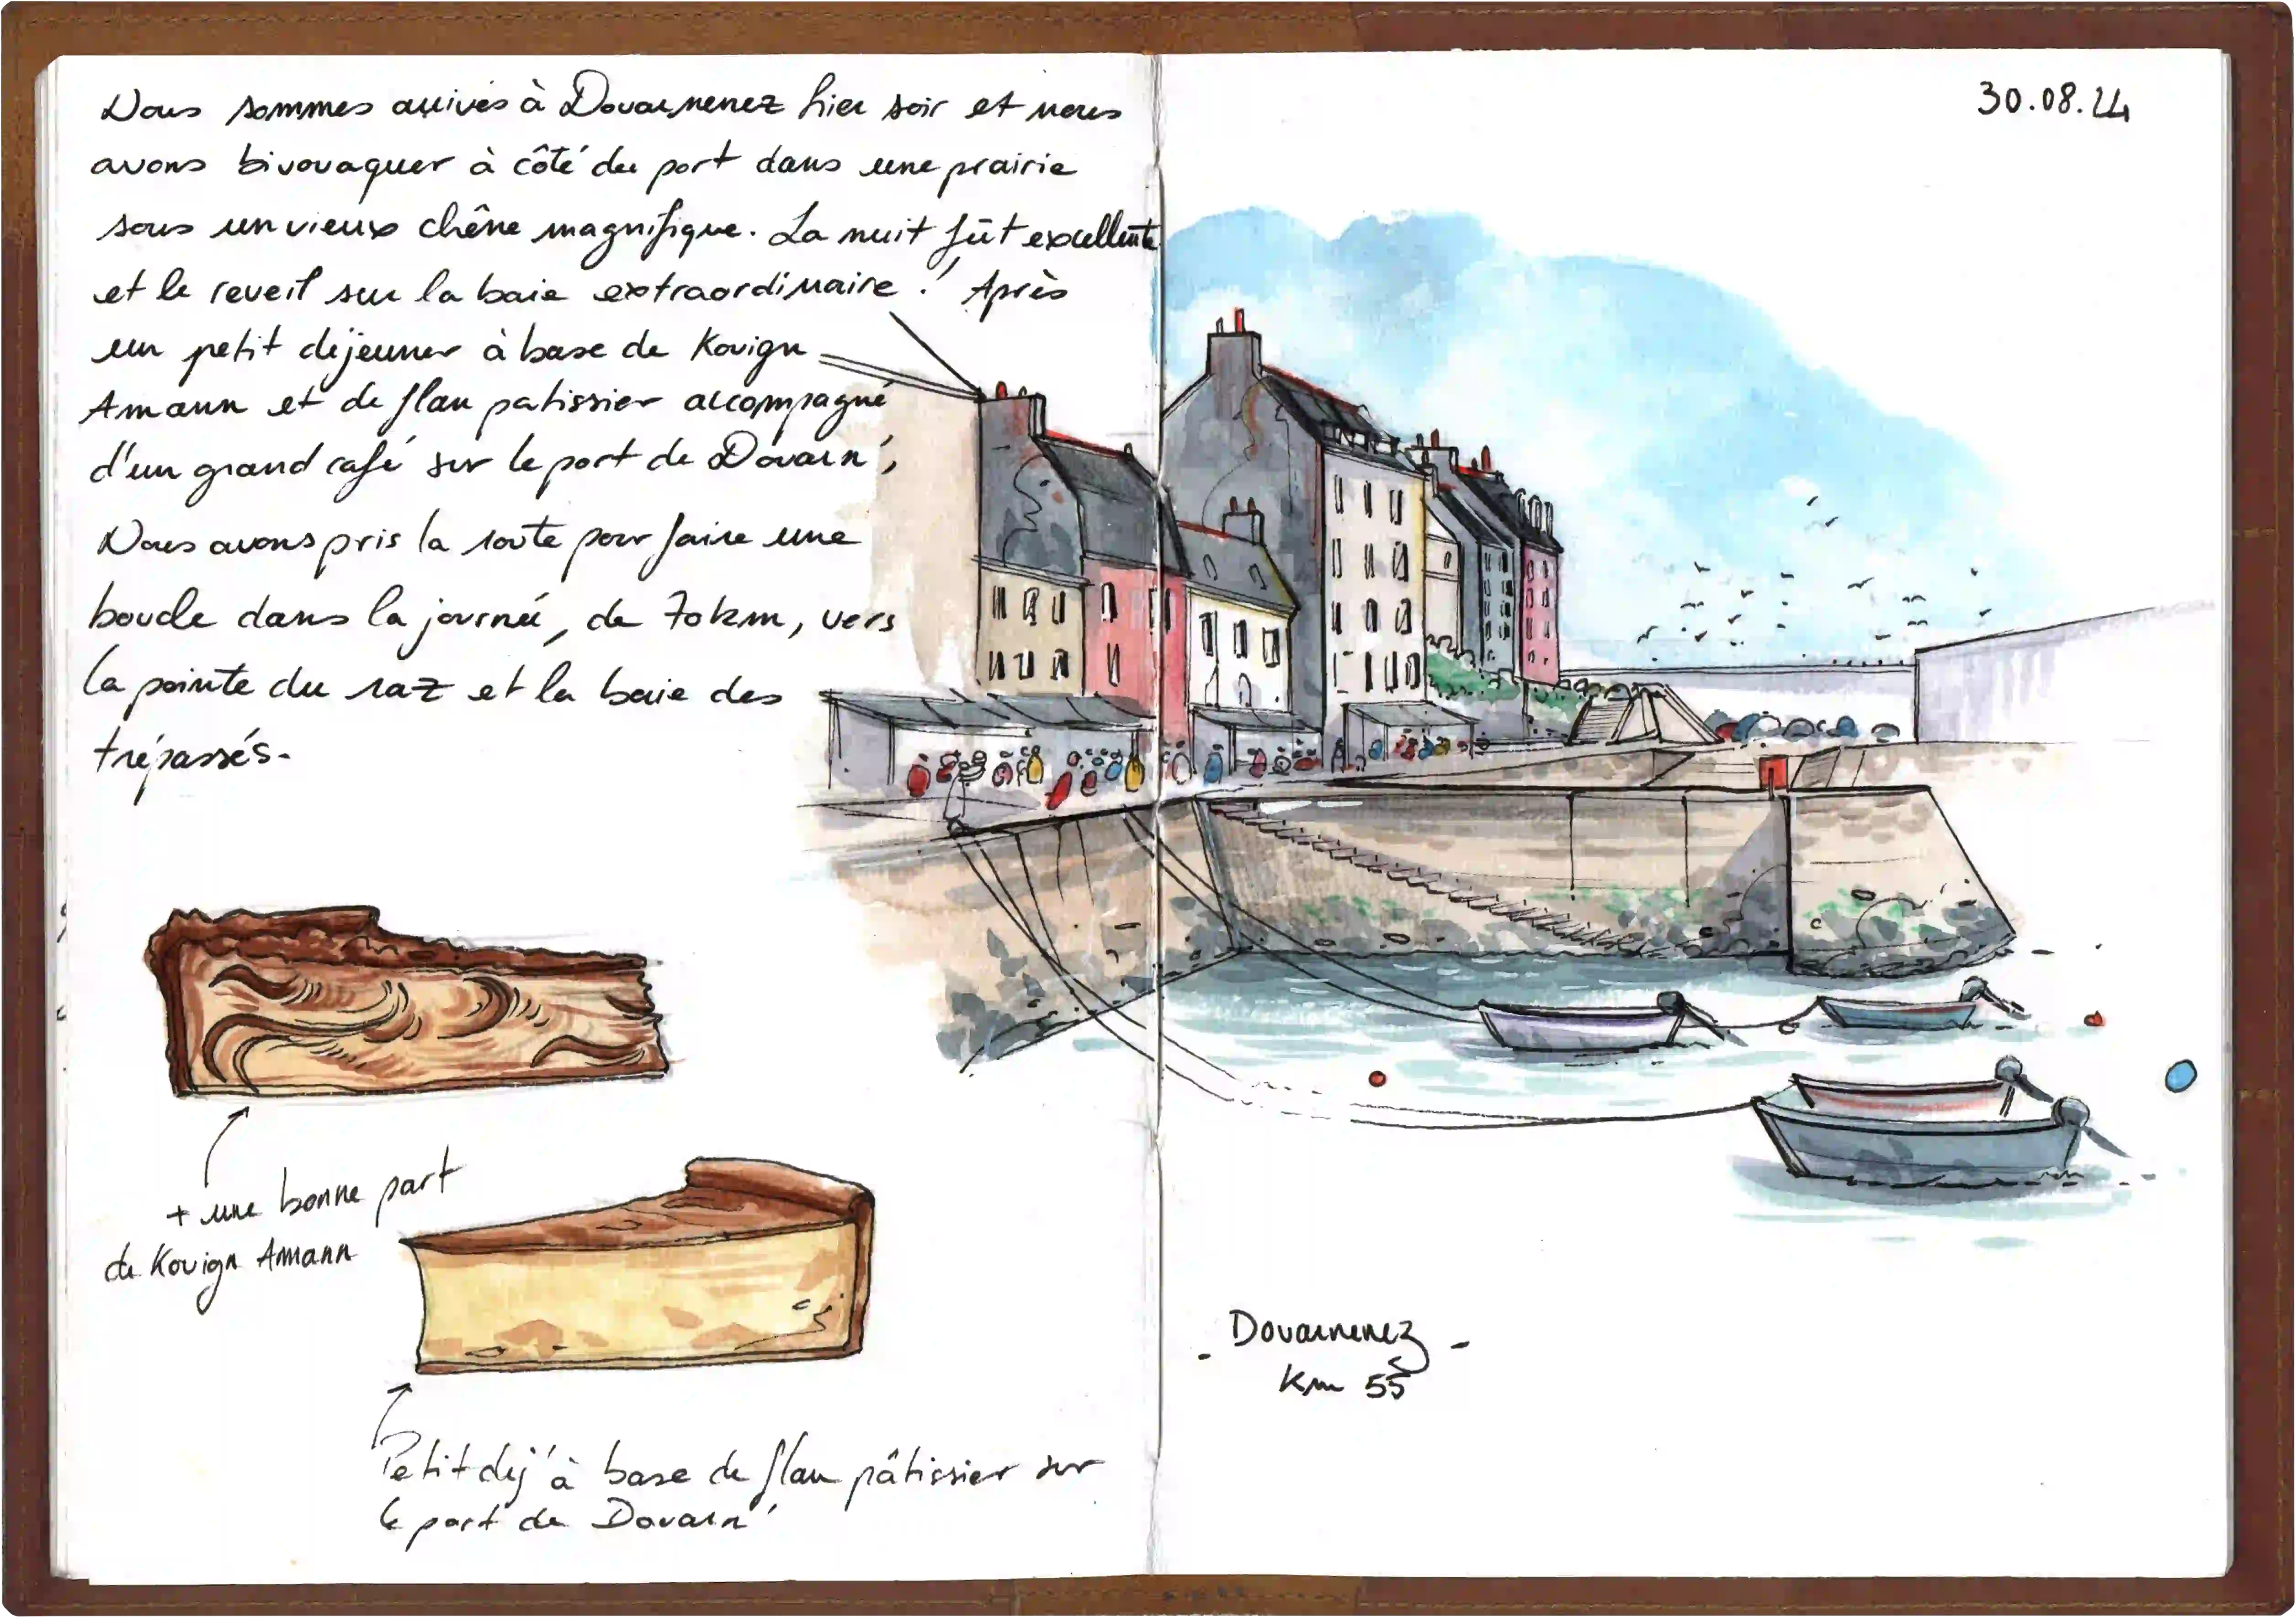 Nous sommes arrivés à Douarnenez hier soir et nous
avons bivouaquer à côté du port dans une prairie
sous un vieux chêne magnifique. La nuit fût excellente
et le reveil sur la baie extraordinaire ! Après
un petit déjeuner à base de Kouign
Amann et de flan patissier accompagné
d'un grand café sur le port de Douarn',
Nous avons pris la route pour faire une
boucle dans la journée, de 70km, vers
la pointe du raz et la baie des
trépassés.
+ une bonne part
de Kouign Amann
Petit dej' à base de flan pâtissier sur
le port de Douarn'
30.08.24
- Douarnenez -
Km 55